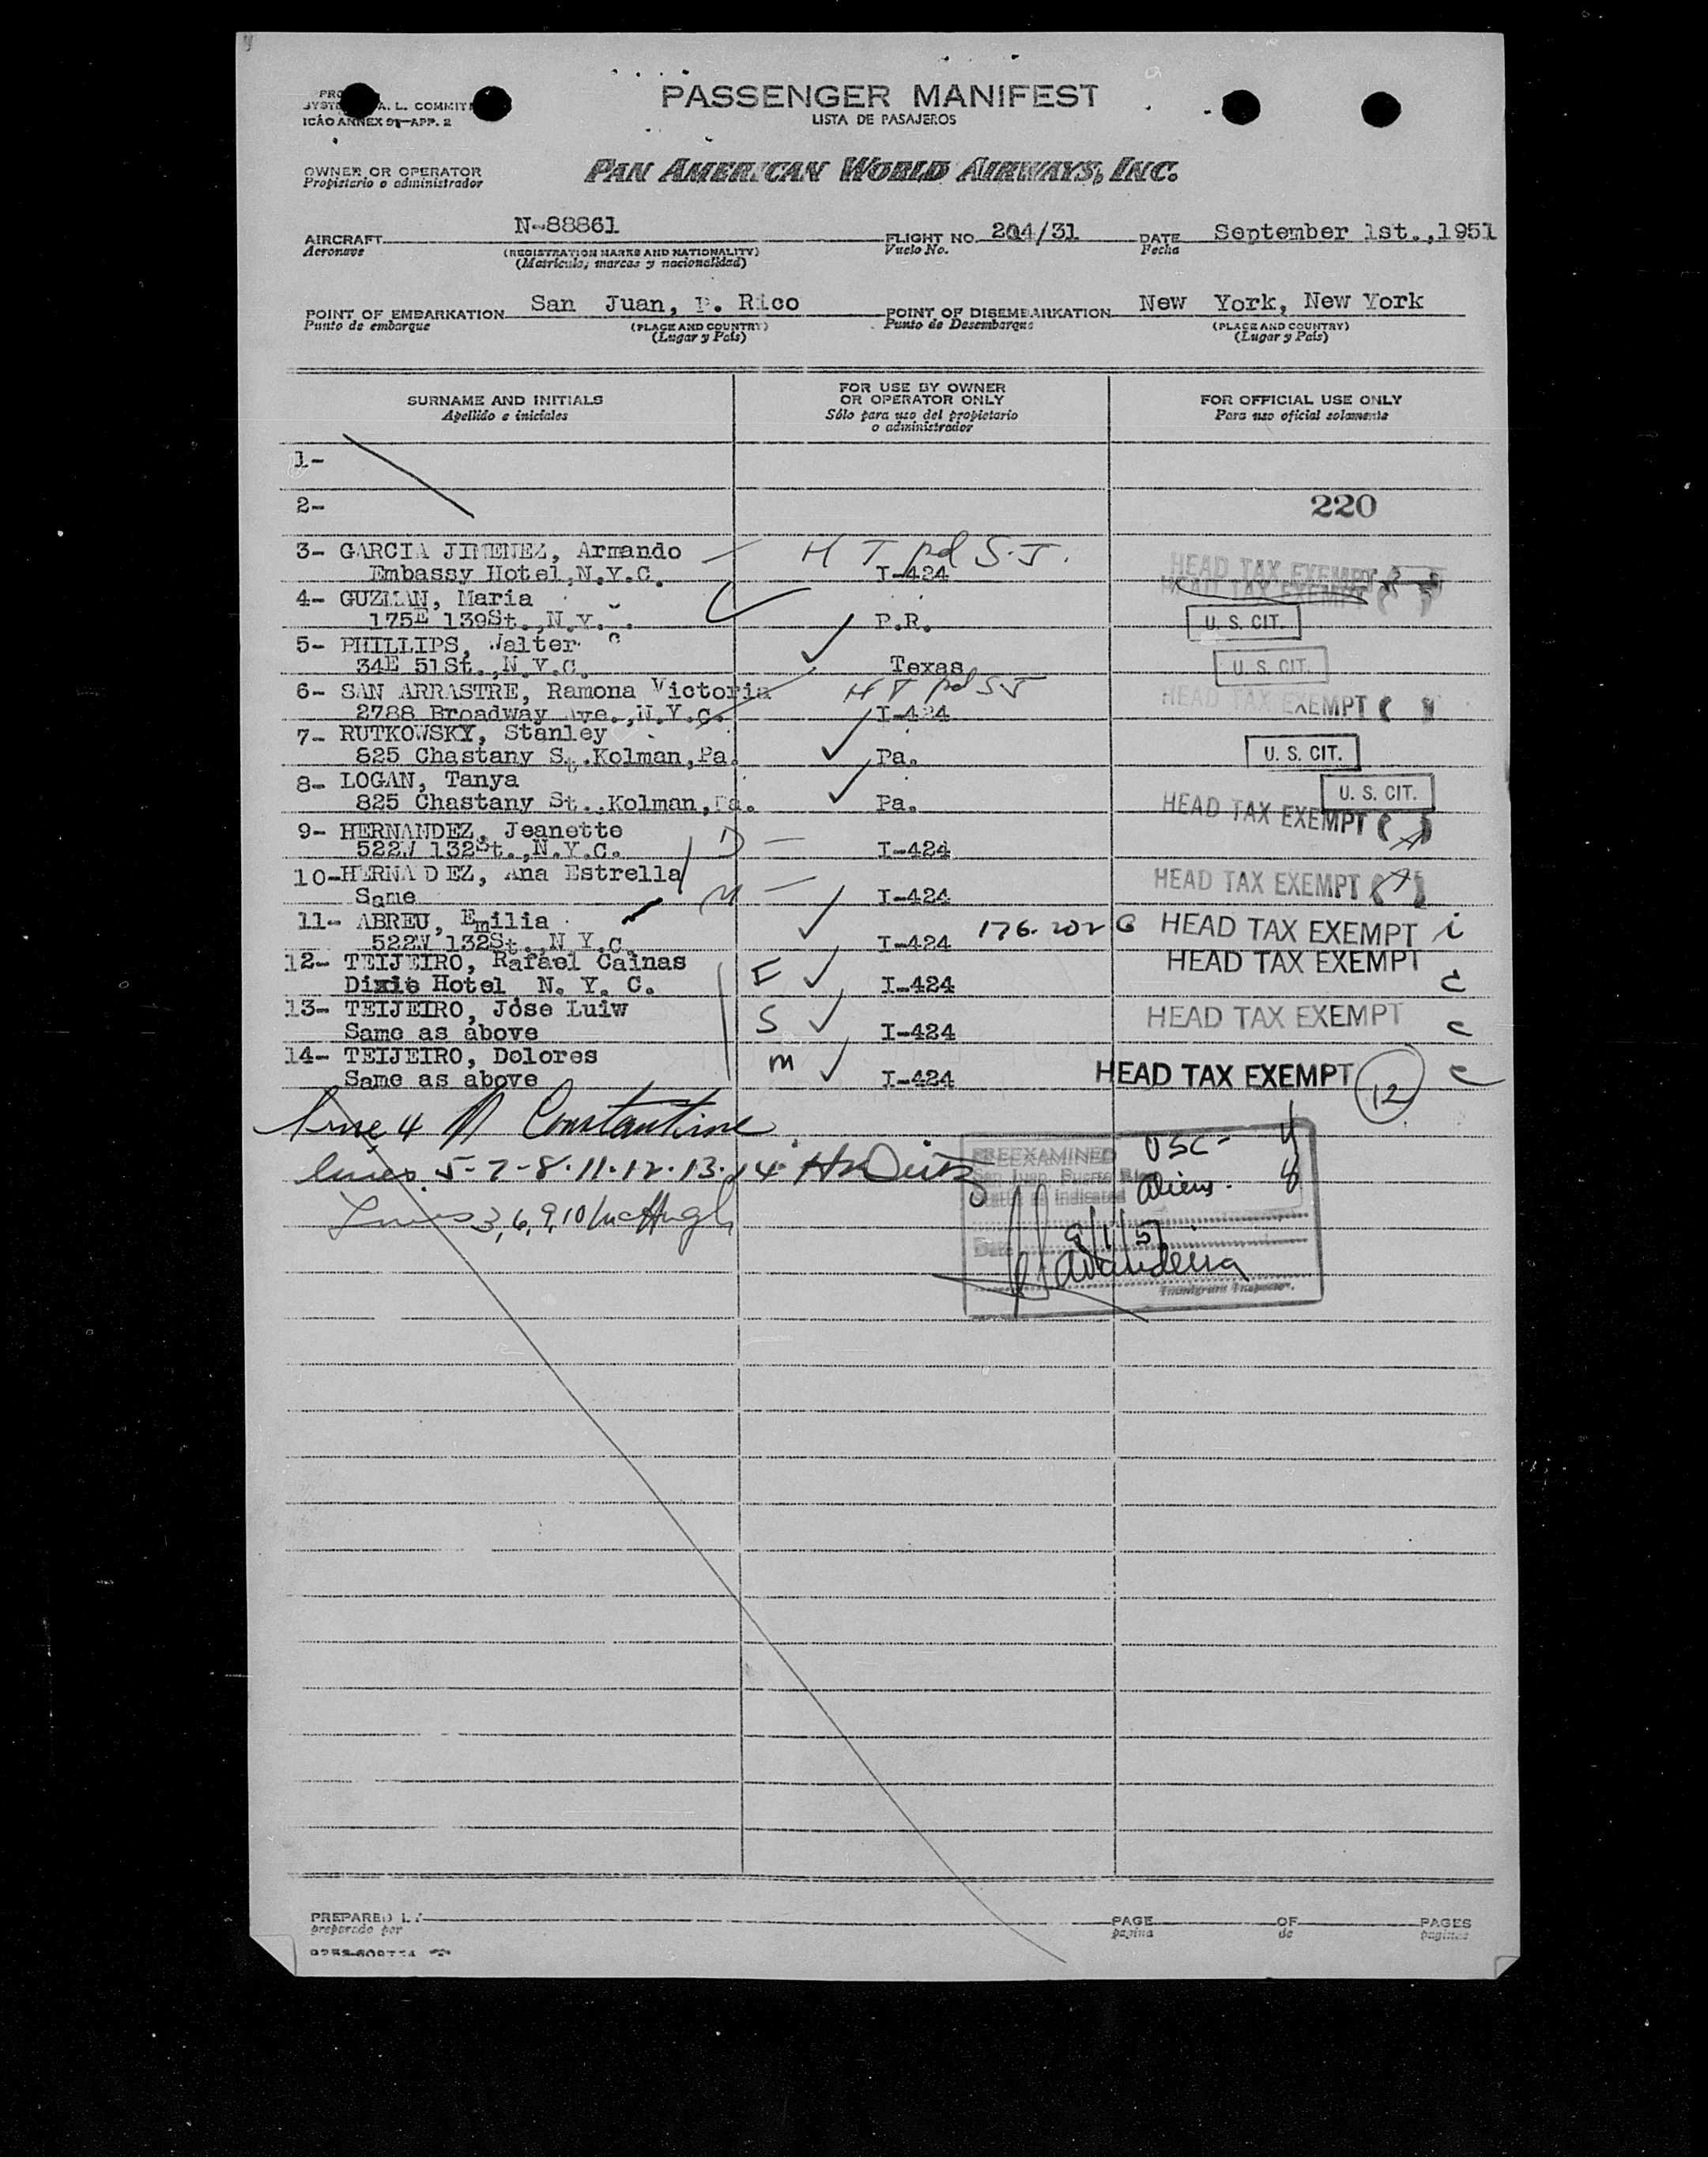 PASSENGER MANIFEST
LISTA DE PASAJEROS
A. L. COMMIT
ICAO ANNEX 9-APP. 2
OWNER OR OPERATOR
Propietario o administrador
PAN AMERICAN WORLD AIRWAYS, INC.
AIRCRAFT N-88861 FLIGHT NO. 204/31 DATE September 1st.,1951
Aeronave (REGISTRATION MARKS AND NATIONALITY) Vuelo No. Fecha
(Matricula, marcas y nacionalidad)
POINT OF EMBARKATION San Juan, P. Rico POINT OF DISEMBARKATION New York, New York
Punto de embarque (PLACE AND COUNTRY) Punto de Desembarque (PLACE AND COUNTRY)
(Lugar y País) (Lugar y País)
SURNAME AND INITIALS FOR USE BY OWNER OR OPERATOR ONLY FOR OFFICIAL USE ONLY
Apellido e iniciales Sólo para uso del propietario o administrador Para uso oficial solamente
1-
2- 220
3- GARCIA JIMENEZ, Armando H T pd S.J. HEAD TAX EXEMPT
Embassy Hotel,N.Y.C. I-424 HEAD TAX EXEMPT
4- GUZMAN, Maria
175E 139St.,N.Y. P.R. U. S. CIT.
5- PHILLIPS, Walter
34E 51St.,N.Y.C. Texas U. S. CIT.
6- SAN ARRASTRE, Ramona Victoria H T pd SJ HEAD TAX EXEMPT
2788 Broadway Ave.,N.Y.C. I-424
7- RUTKOWSKY, Stanley
825 Chastany St.Kolman,Pa. Pa. U. S. CIT.
8- LOGAN, Tanya U. S. CIT.
825 Chastany St.,Kolman,Pa. Pa. HEAD TAX EXEMPT
9- HERNANDEZ, Jeanette D
522W 132St.,N.Y.C. I-424
10-HERNA D EZ, Ana Estrella M HEAD TAX EXEMPT
Same I-424
11- ABREU, Emilia 176.202 G HEAD TAX EXEMPT i
522W 132St.,N Y.C. I-424
12- TEIJEIRO, Rafael Cainas F HEAD TAX EXEMPT
Dixie Hotel N. Y. C. I-424 c
13- TEIJEIRO, Jose Luiw S HEAD TAX EXEMPT
Same as above I-424 c
14- TEIJEIRO, Dolores m HEAD TAX EXEMPT 12 c
Same as above I-424
line 4 M Constantine
lines 5-7-8-11-12-13-14
Lines 3,6,9,10 McHugh
PREEXAMINED USC- 4
San Juan, Puerto Rico
as indicated Aliens. 8
Date 9/1/51
Immigrant Inspector.
PREPARED BY PAGE OF PAGES
preparado por pagina de paginas